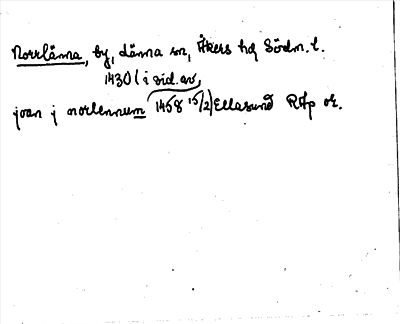 Norrlänna, by, Länna sn, Åkers hd Södm. l.
1430 (i vid. av
joan j norlennum 1458 15/2) Ellasund RAp or.